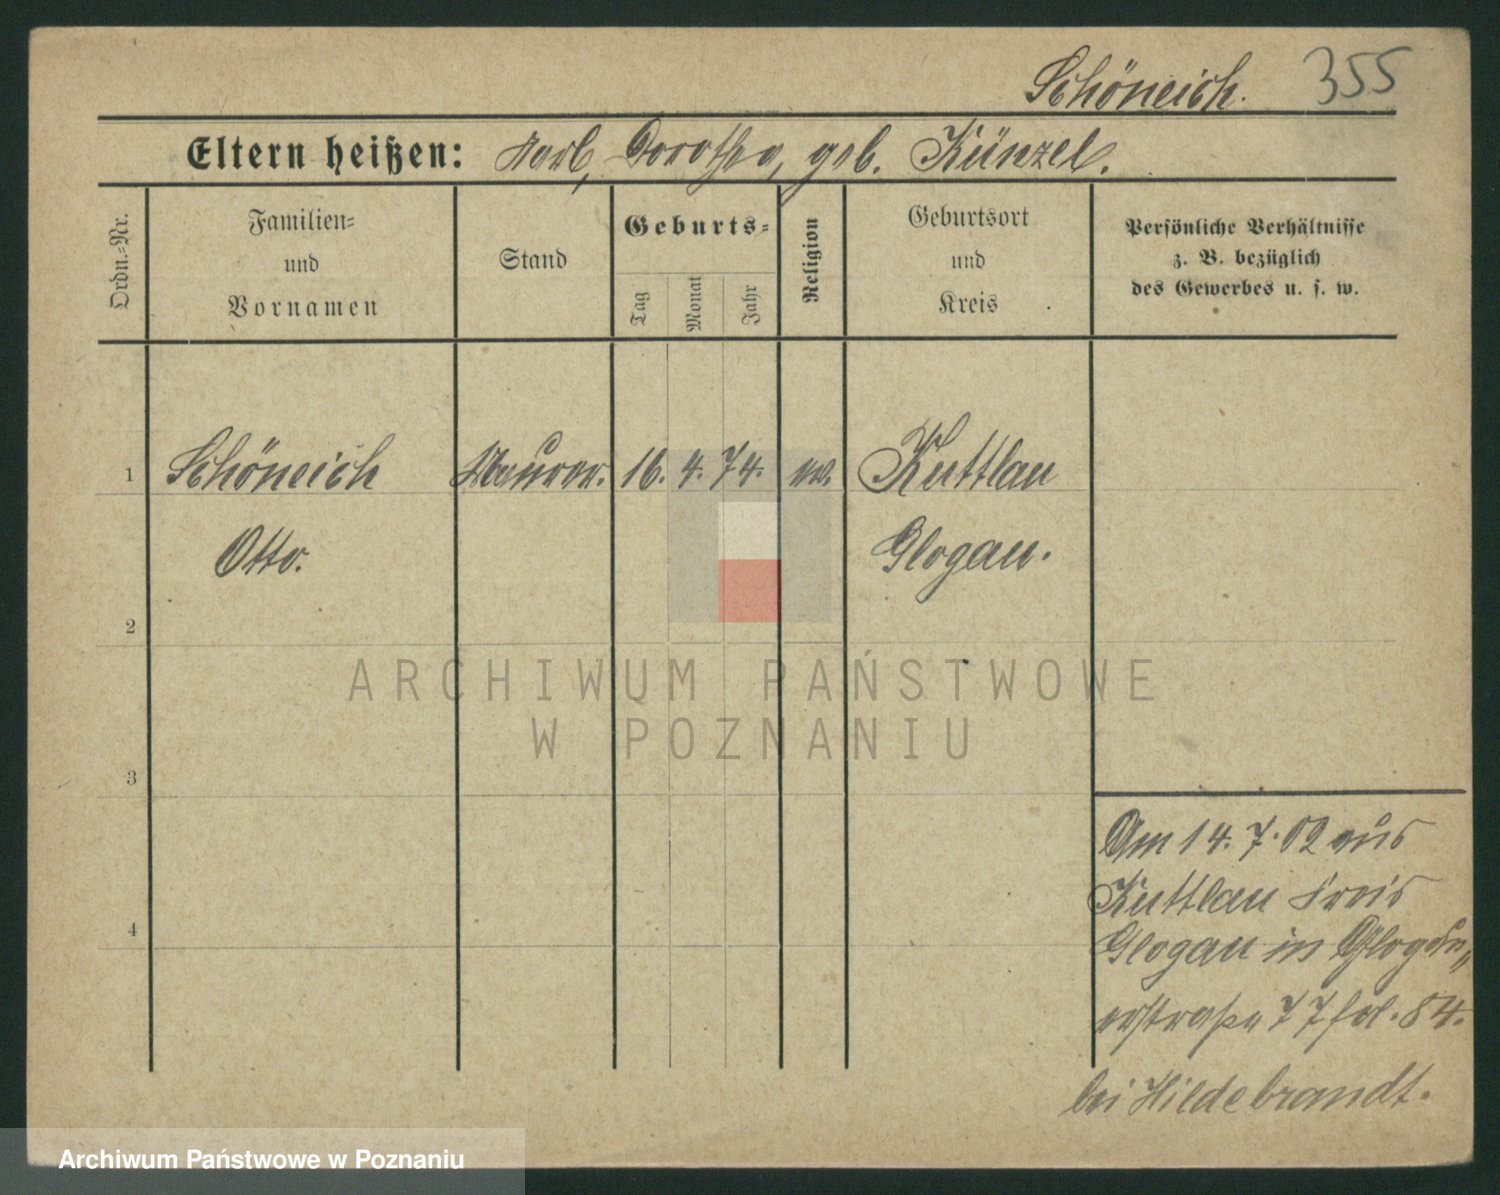 Schöneich. 355
Eltern heißen: Karl, Dorothea, geb. Künzel.
Ordn.-Nr.
Familien-
und
Vornamen
Stand
Geburts-
Tag
Monat
Jahr
Religion
Geburtsort
und
Kreis
Persönliche Verhältnisse
z. B. bezüglich
des Gewerbes u. s. w.
1 Schöneich Maurer. 16. 4. 74. ev. Kuttlau
Otto. Glogau.
2
3
4
Am 14. 7. 02 aus
Kuttlau Kreis
Glogau in Glogau„
erstraße 77 fol. 84.
bei Hildebrandt.
ARCHIWUM PAŃSTWOWE
W POZNANIU
Archiwum Państwowe w Poznaniu